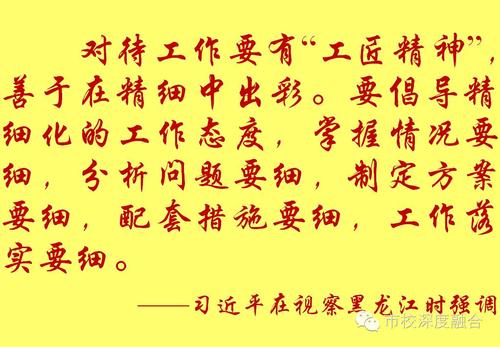 对待工作要有“工匠精神”，
善于在精细中出彩。要倡导精
细化的工作态度，掌握情况要
细，分析问题要细，制定方案
要细，配套措施要细，工作落
实要细。
——习近平在视察黑龙江时强调
市校深度融合